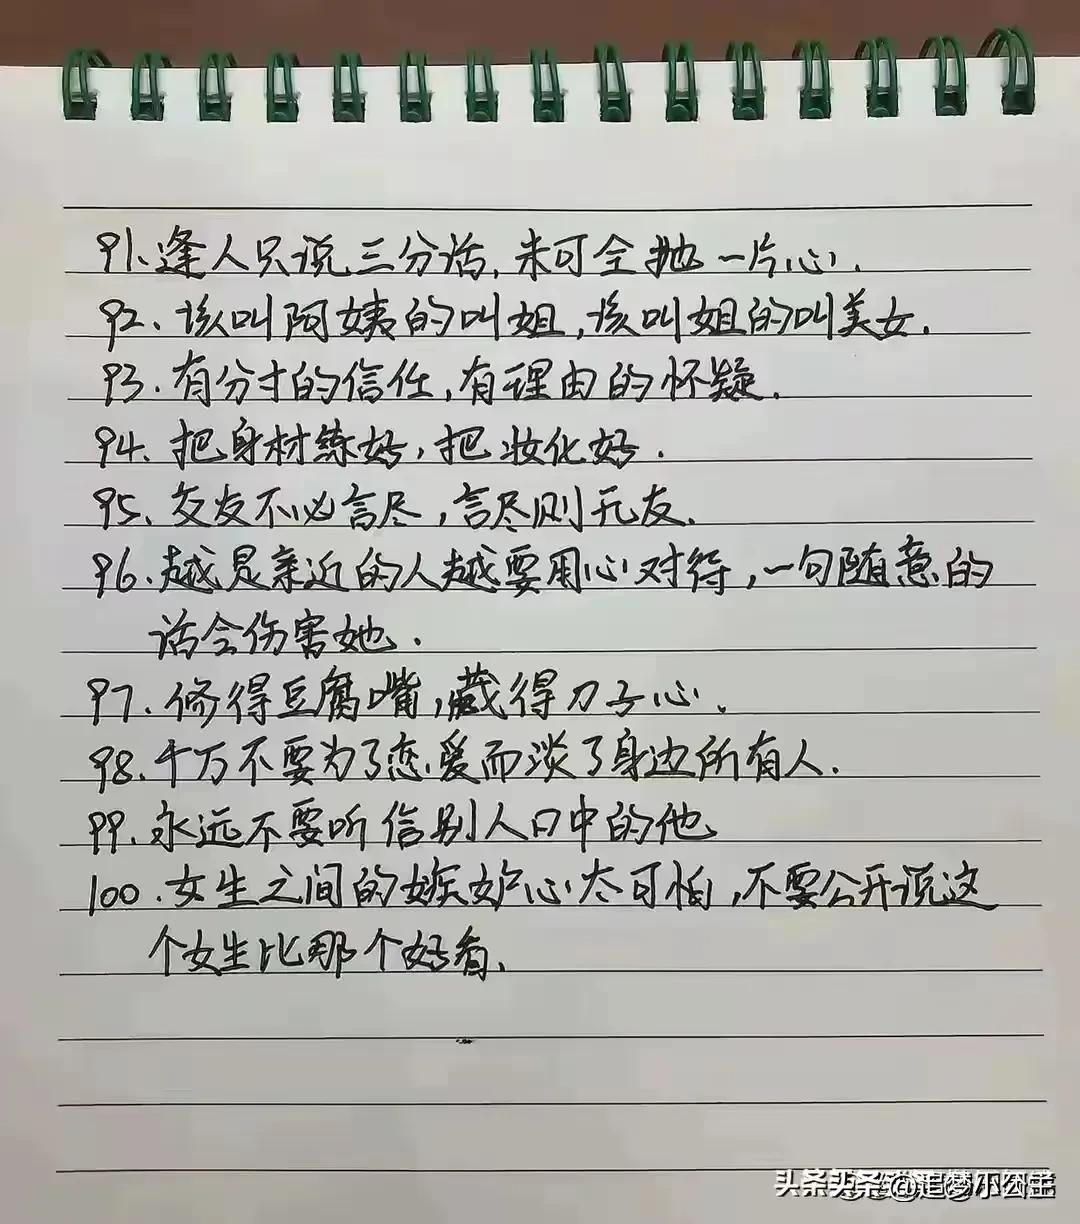 91.逢人只说三分话,未可全抛一片心.
92.该叫阿姨的叫姐,该叫姐的叫美女.
93.有分寸的信任,有理由的怀疑.
94.把身材练好,把妆化好.
95.交友不必言尽,言尽则无友.
96.越是亲近的人越要用心对待,一句随意的
话会伤害她.
97.修得豆腐嘴,藏得刀子心.
98.千万不要为了恋爱而淡了身边所有人.
99.永远不要听信别人口中的他
100.女生之间的嫉妒心太可怕,不要公开说这
个女生比那个好看.
头条头条@追梦小公主